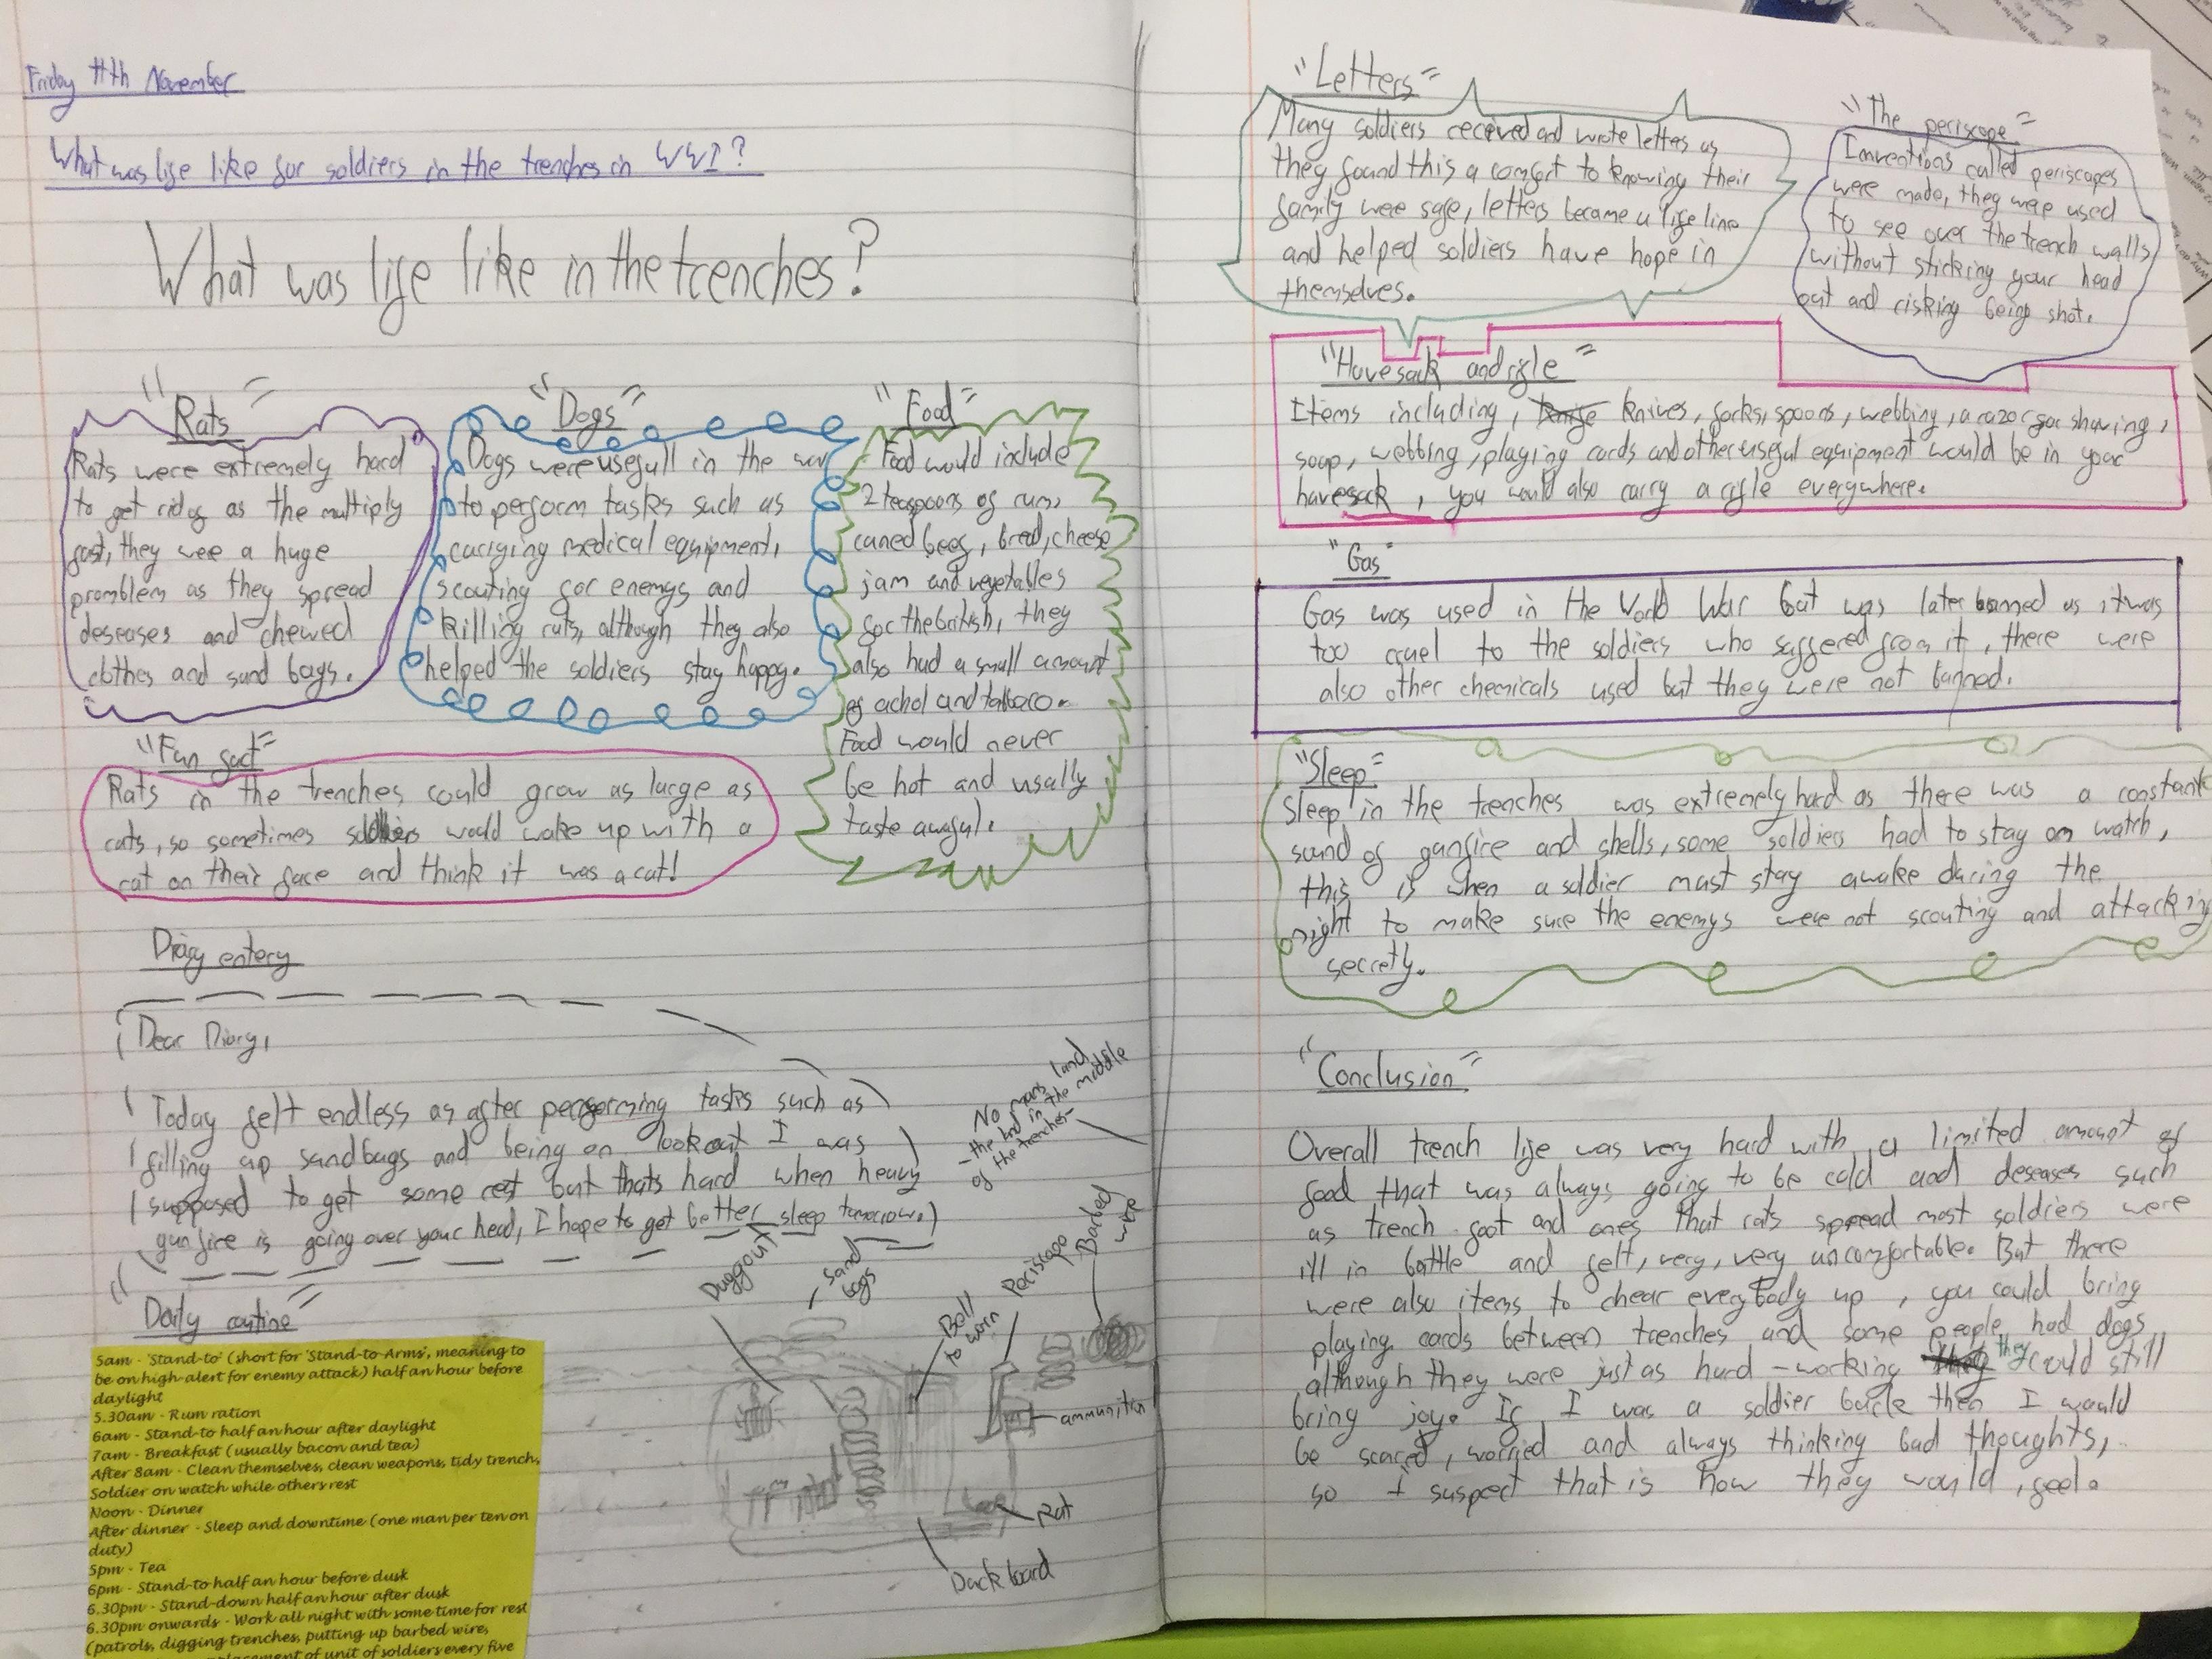 Friday 11th November
What was life like for soldiers in the trenches in WWI?
What was life like in the trenches?
"Rats"
Rats were extremely hard
to get rid of as the multiply
fast, they wee a huge
promblem as they spread
deseases and chewed
clothes and sand bags.
"Dogs"
Dogs were usefull in the war
to perform tasks such as
carrying medical equipment,
scouting for enemys and
killing rats, although they also
helped the soldiers stay happy.
"Food"
Food would include
2 teaspoons of rum,
caned beef, bred, cheese
jam and vegetables
for the british, they
also had a small amount
of achol and tabbaco.
Food would never
be hot and usally
taste awful.
"Fun fact"
Rats in the trenches could grow as large as
cats, so sometimes soldiers would wake up with a
rat on their face and think it was a cat!
Diary entery
Dear Diary,
Today felt endless as after performing tasks such as
filling up sandbags and being on lookout I was
supposed to get some rest but thats hard when heavy
gunfire is going over your head, I hope to get better sleep tomorrow.
No mans land
- the land in the middle
of the trenches-
Duggout
Sand
bags
Bell
to warn
Periscope
Barbed
wire
ammunition
Rat
Duckboard
"Daily routine"
5am - 'Stand-to' (short for 'Stand-to-Arms', meaning to
be on high-alert for enemy attack) half an hour before
daylight
5.30am - Rum ration
6am - Stand-to half an hour after daylight
7am - Breakfast (usually bacon and tea)
After 8am - Clean themselves, clean weapons, tidy trench,
Soldier on watch while others rest
Noon - Dinner
After dinner - Sleep and downtime (one man per ten on
duty)
5pm - Tea
6pm - Stand-to half an hour before dusk
6.30pm - Stand-down half an hour after dusk
6.30pm onwards - Work all night with some time for rest
(patrols, digging trenches, putting up barbed wire,
of unit of soldiers every five
"Letters"
Many soldiers recerved and wrote lettes as
they found this a comfort to knowing their
family were safe, letters became a life line
and helped soldiers have hope in
themselves.
"The periscope"
Inventions called periscapes
were made, they were used
to see over the trench walls
without sticking your head
out and risking being shot.
"Havesack and rifle"
Items including, knives, forks, spoons, webbing, a razor for shaving,
soap, webbing, playing cards and other useful equipment would be in your
havesack, you would also carry a rifle everywhere.
"Gas"
Gas was used in the World War but was later banned as it was
too cruel to the soldiers who suffered from it, there were
also other chemicals used but they were not banned.
"Sleep"
Sleep in the trenches was extremely hard as there was a constant
sound of gunfire and shells, some soldiers had to stay on watch,
this is when a soldier must stay awake during the
night to make sure the enemys were not scouting and attacking
secretly.
"Conclusion"
Overall trench life was very hard with a limited amount of
food that was always going to be cold and deseases such
as trench foot and ones that rats spread most soldiers were
ill in battle and felt, very, very uncomfortable. But there
were also items to chear everybody up, you could bring
playing cards between trenches and some people had dogs
although they were just as hard-working they could still
bring joy. If I was a soldier back then I would
be scared, worried and always thinking bad thoughts,
so I suspect that is how they would, feel.